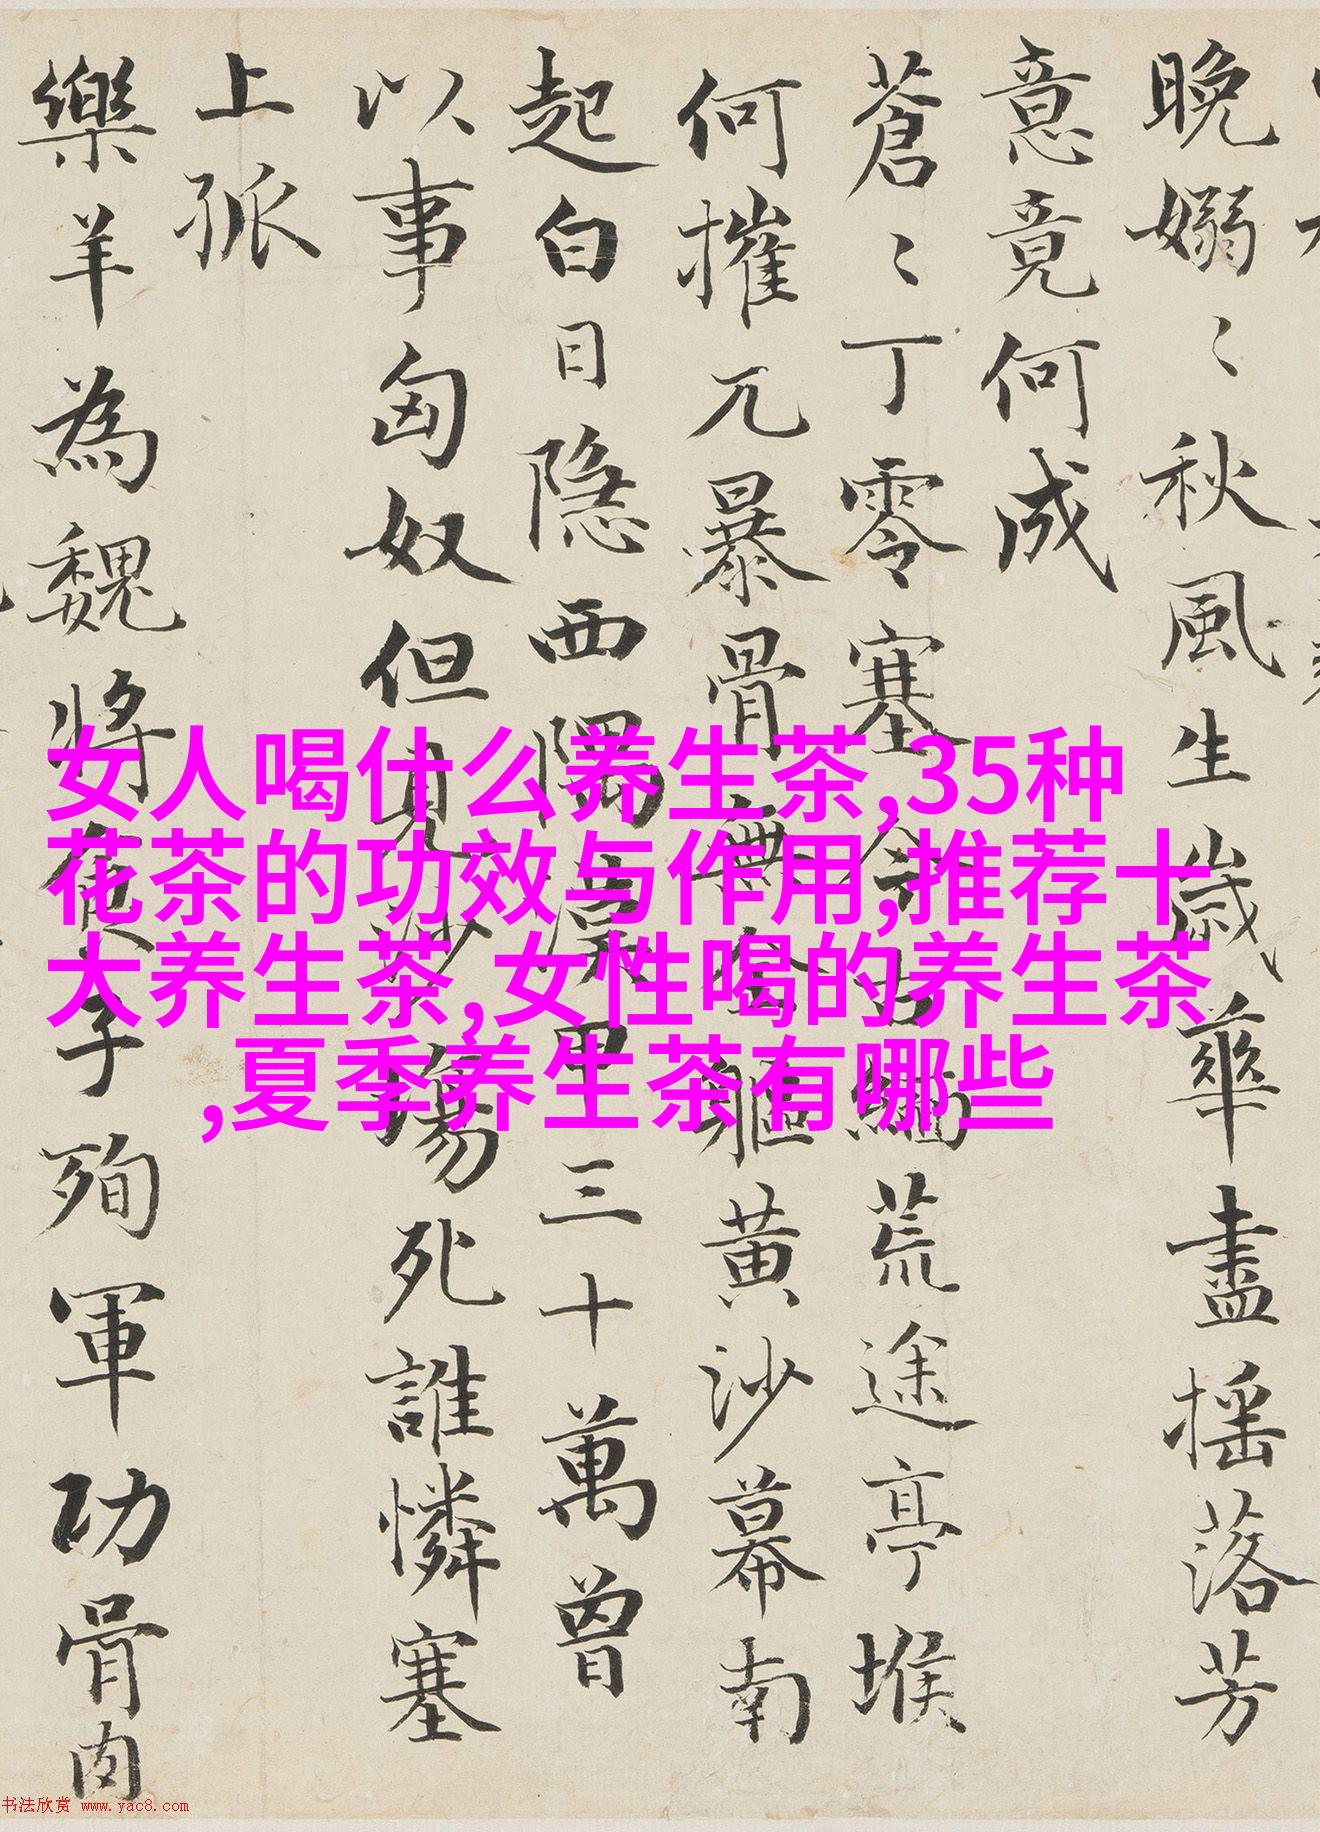 晚嫋〻秋風生歲華盡摇落芳
意竟何成
蒼〻丁零塞今古緬荒途亭堠
何摧兀暴骨無全軀黄沙幕南
起白日隐西隅漢甲三十萬曾
以事匈奴但見沙塲死誰憐塞
上孤
樂羊為魏將食子殉軍功骨肉
女人喝什么养生茶,35种
花茶的功效与作用,推荐十
大养生茶,女性喝的养生茶
,夏季养生茶有哪些
书法欣赏 www.yac8.com